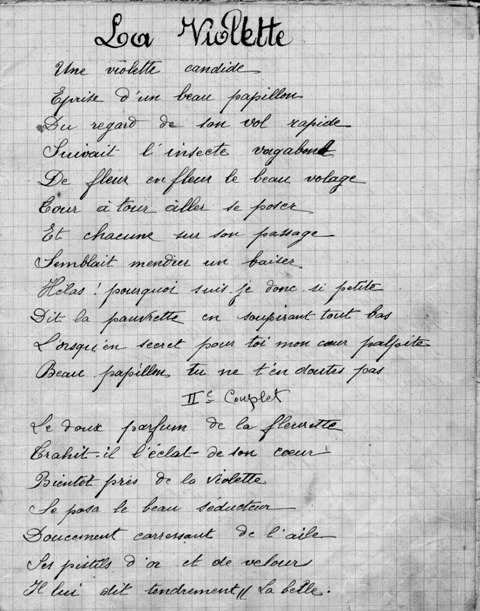 La Violette
Une violette candide
Eprise d'un beau papillon
Du regard de son vol rapide
Suivait l'insecte vagabond
De fleur en fleur le beau volage
Tour à tour àller se poser
Et chacune sur son passage
Semblait mendier un baiser
Hélas ! pourquoi suis-je donc si petite
Dit la pauvrette en soupirant tout bas
Lorsqu'en secret pour toi mon cœur palpite
Beau papillon tu ne t'en doutes pas
IIe Couplet
Le doux parfum de la fleurette
Trahit-il l'éclat de son cœur
Bientôt près de la violette
Se posa le beau séducteur
Doucement carressant de l'aile
Ses pistils d'or et de velours
Il lui dit tendrement // La belle.